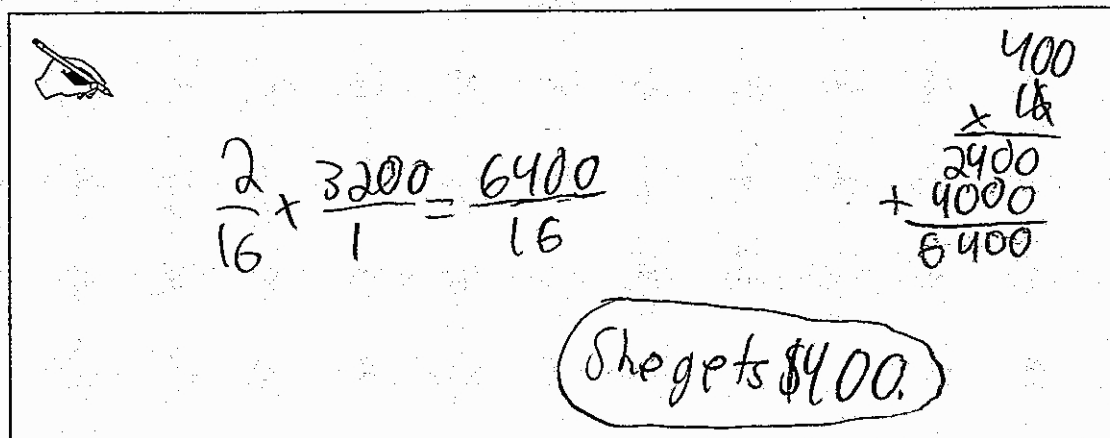 2/16 × 3200/1 = 6400/16
400
× 16
2400
+ 4000
6400
She gets $400.